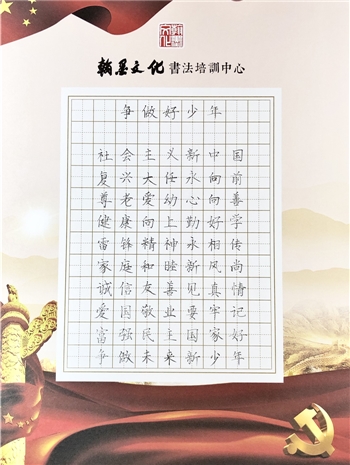 翰墨文化書法培訓中心
争做好少年
社会主义新中国
复兴大任永向前
尊老爱幼心向善
健康向上勤好学
雷锋精神永相传
家庭和睦新风尚
诚信友善见真情
爱国敬业要牢记
富强民主国家好
争做未来新少年